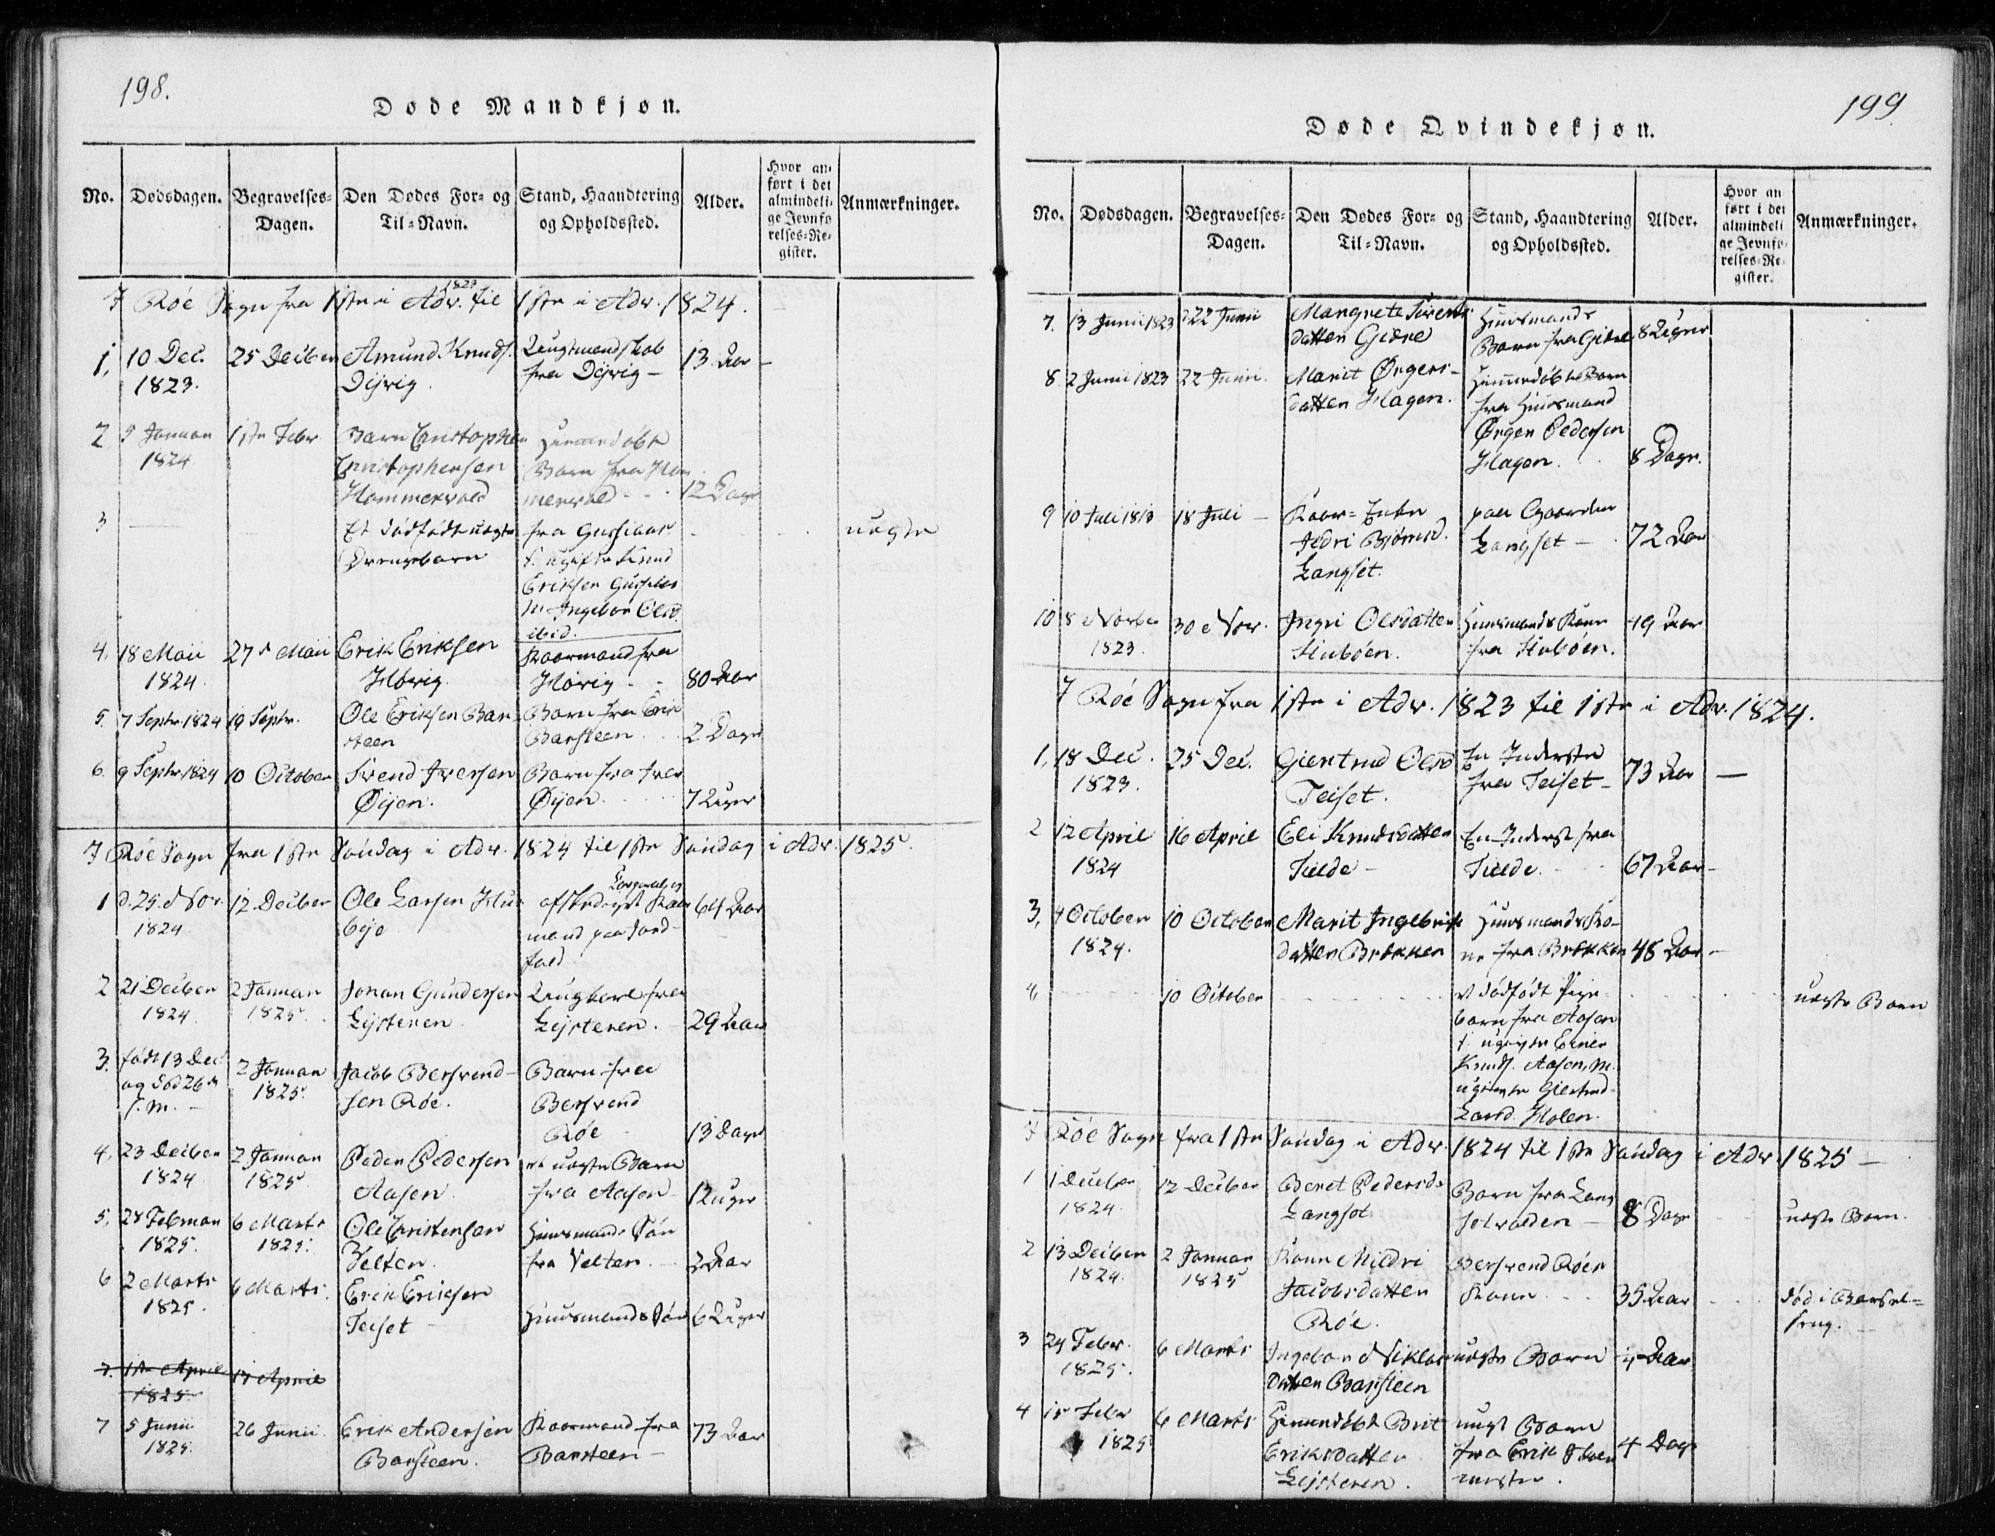 198.
Døde Mandkjøn.
No. Dødsdagen. Begravelses-Dagen. Den Dødes For- og Til-Navn. Stand, Haandtering og Opholdssted. Alder. Hvor anført i det almindelige Jevnførelses-Register. Anmærkninger.
Røe Sogn fra 1ste i Adv. 1823 til 1ste i Adv. 1824.
1, 10 Dec. 1823. 25 Decbr Amund Knuds. Dyrvig. fra Dyrvig – 13 Aar –
2 Januar 1824 1ste Febr Barn Christopher Christophersen Hammervold Hiemmedøbt Barn fra Hammervold 12 Dage
3 Et dødfødt uægte Drengebarn fra Gusiaas f. ugifte Knud Eriksen Gusiaas M. Ingebor Olsd. ibid. uægte
4, 18 Maii 1824. 27de Maii Erik Eriksen Høvig Kaarmand fra Høvig 80 Aar
5. 7 Septr. 1824 19 Septr. Ole Eriksen Barsteen Barn fra Erik Barsteen 2 Dage
6. 9 Septr 1824 10 October Svend Iversen Øijen. Barn fra Iver Øijen. 7 Uger
Røe Sogn fra 1ste Søndag i Adv. 1824 til 1ste Søndag i Adv. 1825.
1 d. 25. Nov. 1824 12 Decber Ole Larsen afskediget mand paa 64 Aar
2 21 Decber 1824 2 Januar 1825. Jonas Gundersen Lejsteren Ungkarl fra Lejsteren. 29 Aar
3. født 13 Dec. og død 26de s.m. – 2 Januar 1825. Jacob Bersvendsen Røe. Barn fra Bersvend Røe 13 Dage
4, 23 Decber 1824 2 Januar 1825 Peder Pedersen Aasen. et uægte Barn fra Aasen 1 Uger
5, 28 Februar 1825. 6 Marts 1825. Ole Christensen Velten. Huusmands Søn fra Velten Aar
6 2 Marts 1825. 6 Marts. Erik Eriksen Teiset Huusmands Søn 6 Uger
7. 1ste April 1825. 17 April
7 5 Junii 1825. 26 Junii Erik Andersen Barsteen. Kaarmand fra Barsteen – 73 Aar
199
Døde Qvindekjøn.
No. Dødsdagen. Begravelses-Dagen. Den Dødes For- og Til-Navn. Stand, Haandtering og Opholdssted. Alder. Hvor anført i det almindelige Jevnførelses-Register. Anmærkninger.
7. 13 Junii 1823 22 Junii Mangrete Sivertsdatter Gjelre Huusmands Barn fra 8 Uger
8. 2 Junii 1823 22 Junii. Marit Ørgersdatter Hagen. Hiemmedøbt Barn fra Huusmand Ørger Pedersen Hagen. 8 Dage.
9 10 Juli 18 Juli – Kaar-Enke Bjørnsd. Langset. paa Gaarden Langset – 72 Aar
10 8 Novber 1823. 30 Nov. Ingri Olsdatter Stubøen. Huusmands Kone fra Stubøen. 49 Aar
Røe Sogn fra 1ste i Adv. 1823 til 1ste i Adv. 1824.
1, 18 Dec. 1823. 25 Dec. Giertrud Olsd Teiset. En Inderste fra Teiset – 73 Aar –
2 12 April 1824 16 April Eli Knudsdatter En Inderst fra 67 Aar –
3, 4 October 1824. 10 October Marit Ingebrigtsdatter Brekken Huusmands Kone fra Brekken 48 Aar –
4, 10 October et dødfødt Pigebarn fra Aasen f. ugivte Knuds. Aasen, M. ugivte Giertrud Larsd. Holen. uægte Barn
Røe Sogn fra 1ste Søndag i Adv. 1824 til 1ste Søndag i Adv. 1825 –
1 1 Decber 1824. 12 Decber Beret Pedersd. Langset Barn fra Langsetvolden – 8 Dage uægte Barn.
2 13 Decber 1824. 2 Januar 1825 Kone Mildri Jacobsdatter Røe. Bersvend Røes Kone 35 Aar død i Barselseng. –
3 24 Febr. 1825. 6 Marts Ingebor Niklasdatter Barsteen uægte Barn Aar
4 15 Febr 1825 6 Marts Hiemmedøbt Brit Eriksdatter Lejsteren. uægt Barn fra Erik 4 Dage